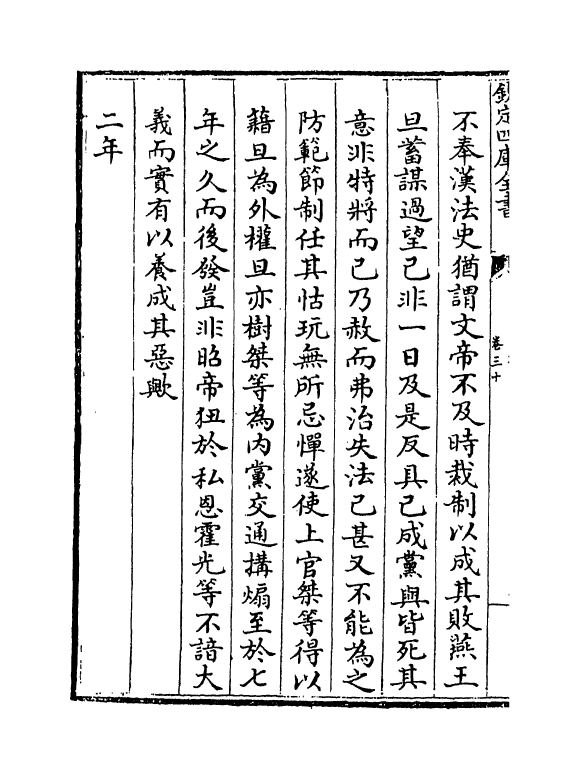 欽定四庫全書
卷三十
不奉漢法史猶謂文帝不及時裁制以成其敗燕王
旦蓄謀過望已非一日及是反具已成黨與皆死其
意非特將而已乃赦而弗治失法已甚又不能為之
防範節制任其怙玩無所忌憚遂使上官桀等得以
藉旦為外權旦亦樹桀等為内黨交通搆煽至於七
年之久而後發豈非昭帝狃於私恩霍光等不諳大
義而實有以養成其惡歟
二年